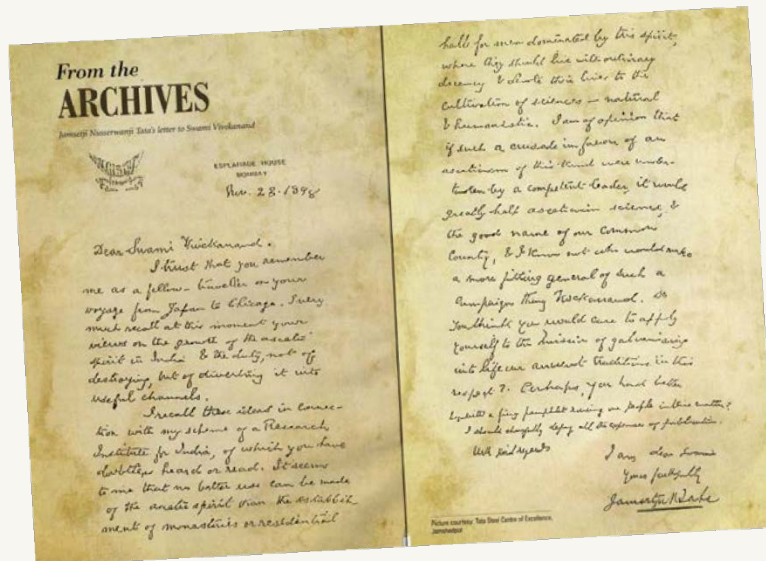 From the
ARCHIVES
Jamsetji Nusserwanji Tata's letter to Swami Vivekanand
ESPLANADE HOUSE
BOMBAY
Nov. 23. 1898
Dear Swami Vivekanand.
I trust that you remember
me as a fellow-traveller on your
voyage from Japan to Chicago. I very
much recall at this moment your
views on the growth of the ascetic
spirit in India & the duty, not of
destroying, but of diverting it into
useful channels.
I recall these ideas in connec-
tion with my scheme of a Research
Institute for India, of which you have
doubtless heard or read. It seems
to me that no better use can be made
of the ascetic spirit than the establish
ment of monasteries or residential
halls for men dominated by this spirit,
where they should live with ordinary
decency & devote their lives to the
cultivation of sciences – natural
& humanistic. I am of opinion that
if such a crusade in favour of an
asceticism of this kind were under-
taken by a competent leader, it would
greatly help asceticism, science, &
the good name of our common
country, & I know not who would make
a more fitting general of such a
campaign than Vivekanand. Do
you think you would care to apply
yourself to the mission of galvanising
into life our ancient traditions in this
respect? Perhaps, you had better
begin with a fiery pamphlet rousing our people in this matter?
I should cheerfully defray all the expenses of publication.
With kind regards
I am dear Swami
Yours faithfully
Jamsetji N Tata
Picture courtesy: Tata Steel Centre of Excellence,
Jamshedpur